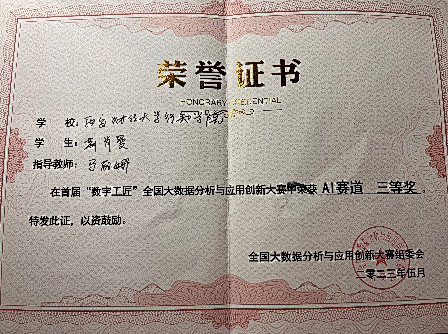 荣誉证书
HONORARY CREDENTIAL
学 校：西安财经大学行知学院
学 生：
指导教师：马丽娜
在首届“数字工匠”全国大数据分析与应用创新大赛中荣获 AI赛道 三等奖，
特发此证，以资鼓励。
全国大数据分析与应用创新大赛组委会
二零二三年伍月